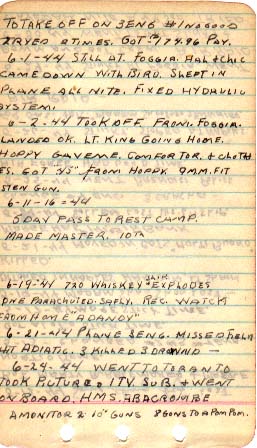 TO TAKE OFF ON 3 ENG #1 NO GOOD
TRYED 2 TIMES. GOT $174.96 PAY.
6-1-44 STILL AT. FOGGIA. HAL & CHIC
CAME DOWN WITH BIRD. SLEPT IN
PLANE ALL NITE. FIXED HYDRAULIC
SYSTEM.
6-2-44 TOOK OFF FROM. FOGGIA.
LANDED OK. LT. KING GOING HOME.
HOPPY GAVE ME. COMFORTOR. & CLOTH
ES. GOT .45" FROM HOPPY. 9MM. FIT
STEN GUN.
6-11-16-44
5 DAY PASS TO REST CAMP.
MADE MASTER. 10TH
6-19-44 720 WHISKEY JAIR EXPLODES
ONE PARACHUTED. SAFLY. REC. WATCH
FROM HOME "ADANDY"
6-21-44 PLANE 3 ENG. MISSED FIELD
HIT ADIATIC. 3 KILLED 3 DROWND —
6-24-44 WENT TO TARANTO
TOOK PICTURE. ITY. SUB. & WENT
ON BOARD. HMS. ABACROMBE
A MONITOR 2-10" GUNS 8 GONS TO A POM POM.